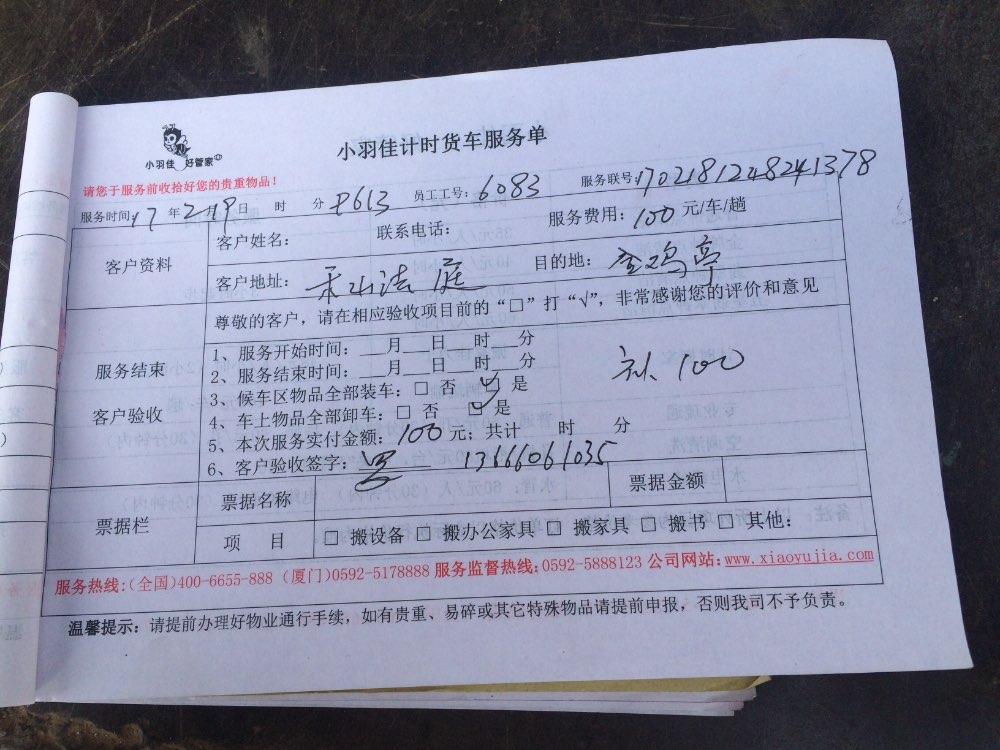 小羽佳 好管家
小羽佳计时货车服务单
请您于服务前收拾好您的贵重物品！
服务时间：17年2月19日 时 分 P613 员工工号：6083 服务联号：1702181248241378
客户资料
客户姓名： 联系电话： 服务费用：100元/车/趟
客户地址：禾山法庭 目的地：金鸡亭
服务结束
客户验收
尊敬的客户，请在相应验收项目前的“□”打“√”，非常感谢您的评价和意见
1、服务开始时间：___月___日___时___分
2、服务结束时间：___月___日___时___分
3、候车区物品全部装车：□ 否 ☑ 是
4、车上物品全部卸车：□ 否 □ 是
5、本次服务实付金额：100元；共计 时 分
6、客户验收签字： 13666061035
补100
票据栏
票据名称 票据金额
项 目 □ 搬设备 □ 搬办公家具 □ 搬家具 □ 搬书 □ 其他：
服务热线：(全国)400-6655-888 (厦门)0592-5178888 服务监督热线：0592-5888123 公司网站：www.xiaoyujia.com
温馨提示：请提前办理好物业通行手续，如有贵重、易碎或其它特殊物品请提前申报，否则我司不予负责。